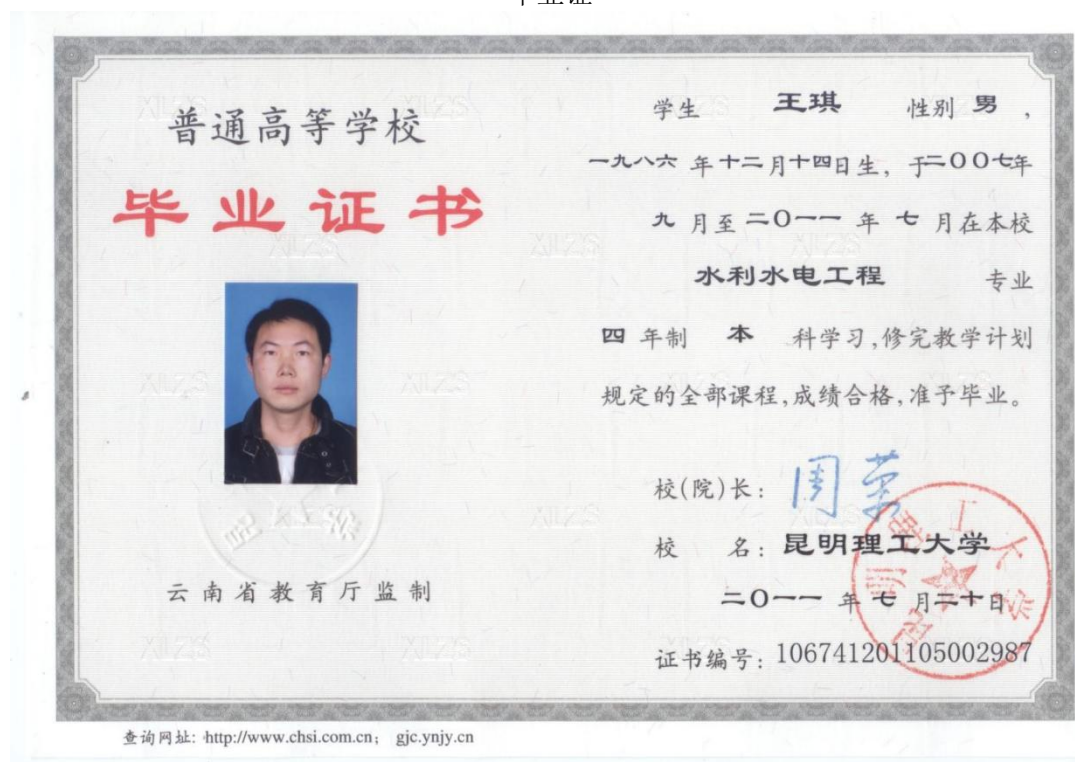 毕业证
普通高等学校
毕业证书
云南省教育厅监制
学生 王琪 性别 男，
一九八六 年十二月十四日生，于二〇〇七年
九 月至二〇一一 年 七 月在本校
水利水电工程 专业
四 年制 本 科学习，修完教学计划
规定的全部课程，成绩合格，准予毕业。
校(院)长：周荣
校 名：昆明理工大学
二〇一一 年 七 月二十日
证书编号：106741201105002987
昆明理工大学
查询网址：http://www.chsi.com.cn; gjc.ynjy.cn